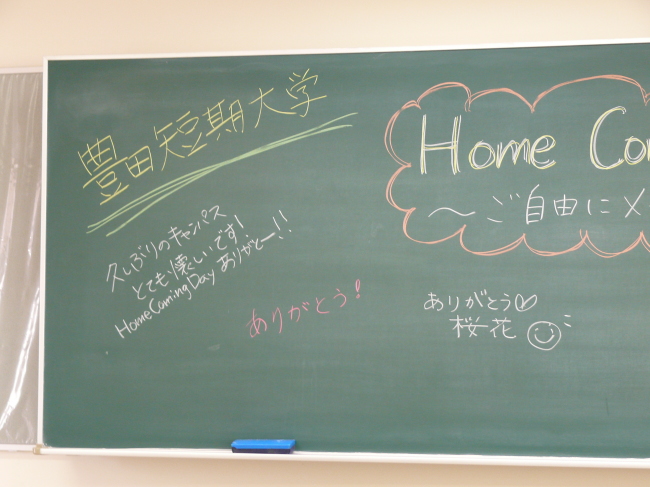 豊田短期大学
Home Co
～ご自由にメ
久しぶりのキャンパス
とても懐しいです!
HomeComingDay ありがとー!!
ありがとう!
ありがとう♡
桜花